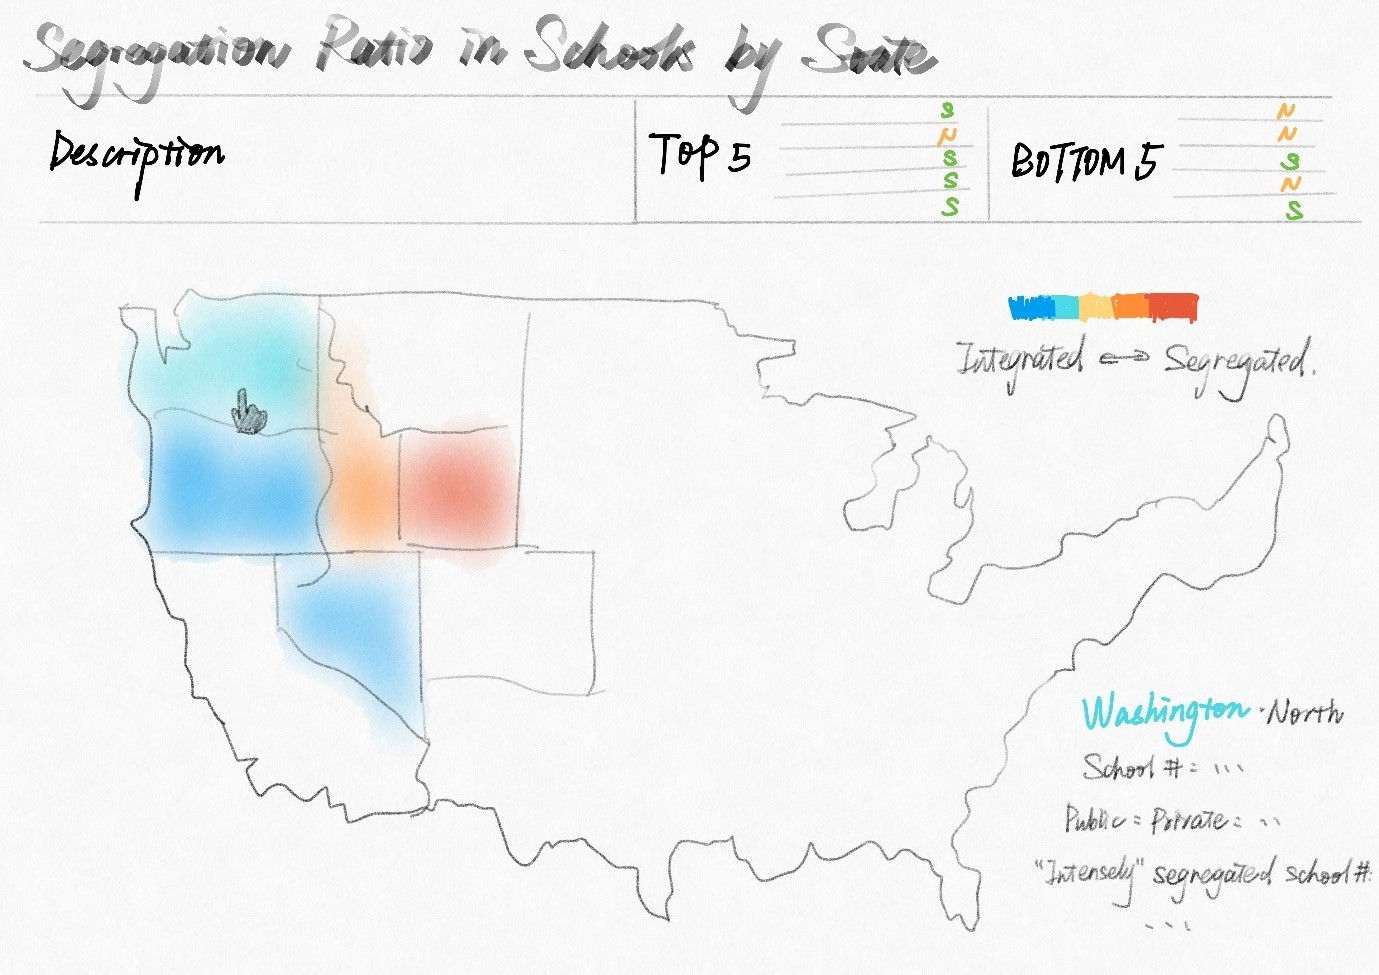 Segregation Ratio in Schools by State
Description
TOP 5
S
N
S
S
S
BOTTOM 5
N
N
S
N
S
Integrated ⟺ Segregated.
Washington · North
School # = ...
Public = Private = ..
"Intensely" segregated school #:
...